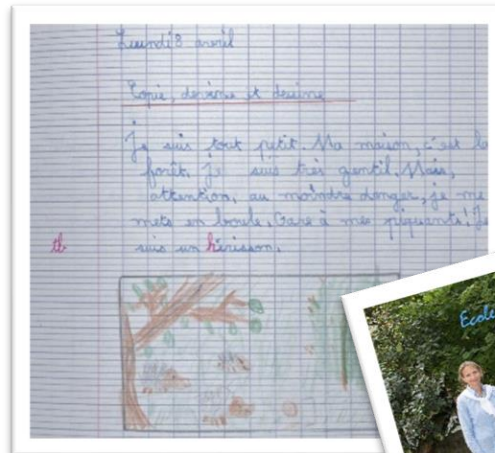 Lundi 8 avril
Copie, devine et dessine
Je suis tout petit. Ma maison, c'est la
forêt. Je suis très gentil. Mais,
attention, au moindre danger, je me
mets en boule. Gare à mes piquants! Je
tb suis un hérisson.
Ecole